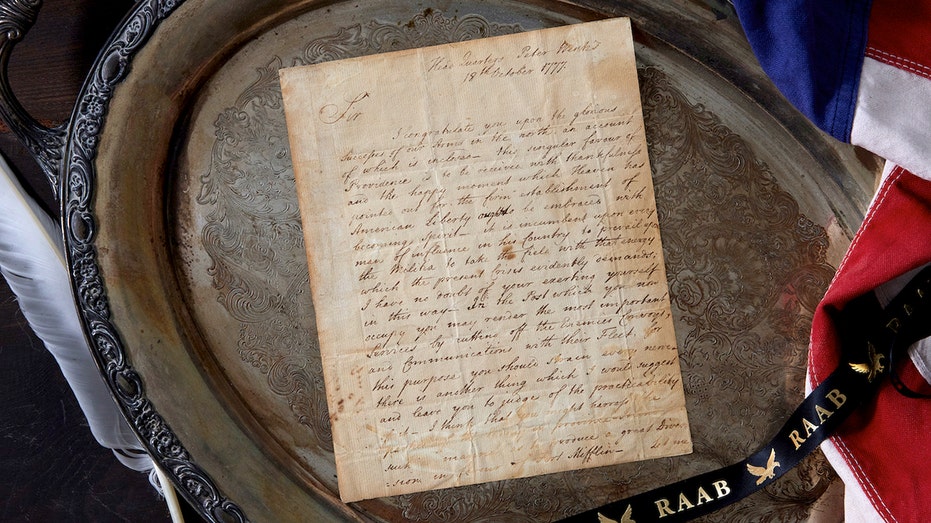 Head Quarters Peter Wentz
18th October 1777.
Sir
I congratulate you upon the glorious
success of our Arms in the north an account
of which is inclosd. This singular favour of
Providence is to be received with thankfulness
and the happy moment which Heaven has
pointed out for the firm establishment of
American liberty ought to be embraced with
becoming Spirit - it is incumbent upon every
man of influence in his Country to prevail upon
the Militia to take the field with that energy
which the present crisis evidently demands.
I have no doubt of your exerting yourself
in this way - In the Post which you now
occupy you may render the most important
Services by cutting off the Enemies Convoys
and Communications with their Fleet, for
this purpose you should strain every nerve
there is another thing which I would suggest
and leave you to judge of the practicability
I think that
province
such produce a great Diver-
sion in Fort Mifflin - let me
RAAB
RAAB
RAAB